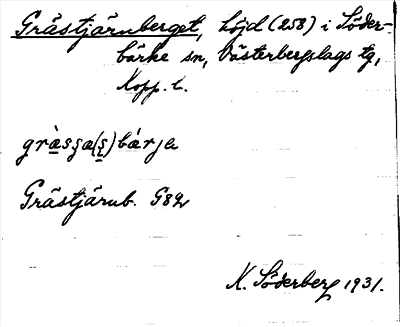 Gråstjärnberget, höjd (258) i Söder-
bärke sn, Västerbergslags tg,
Kopp. l.
Gråstjärnb. G82
K. Söderberg 1931.